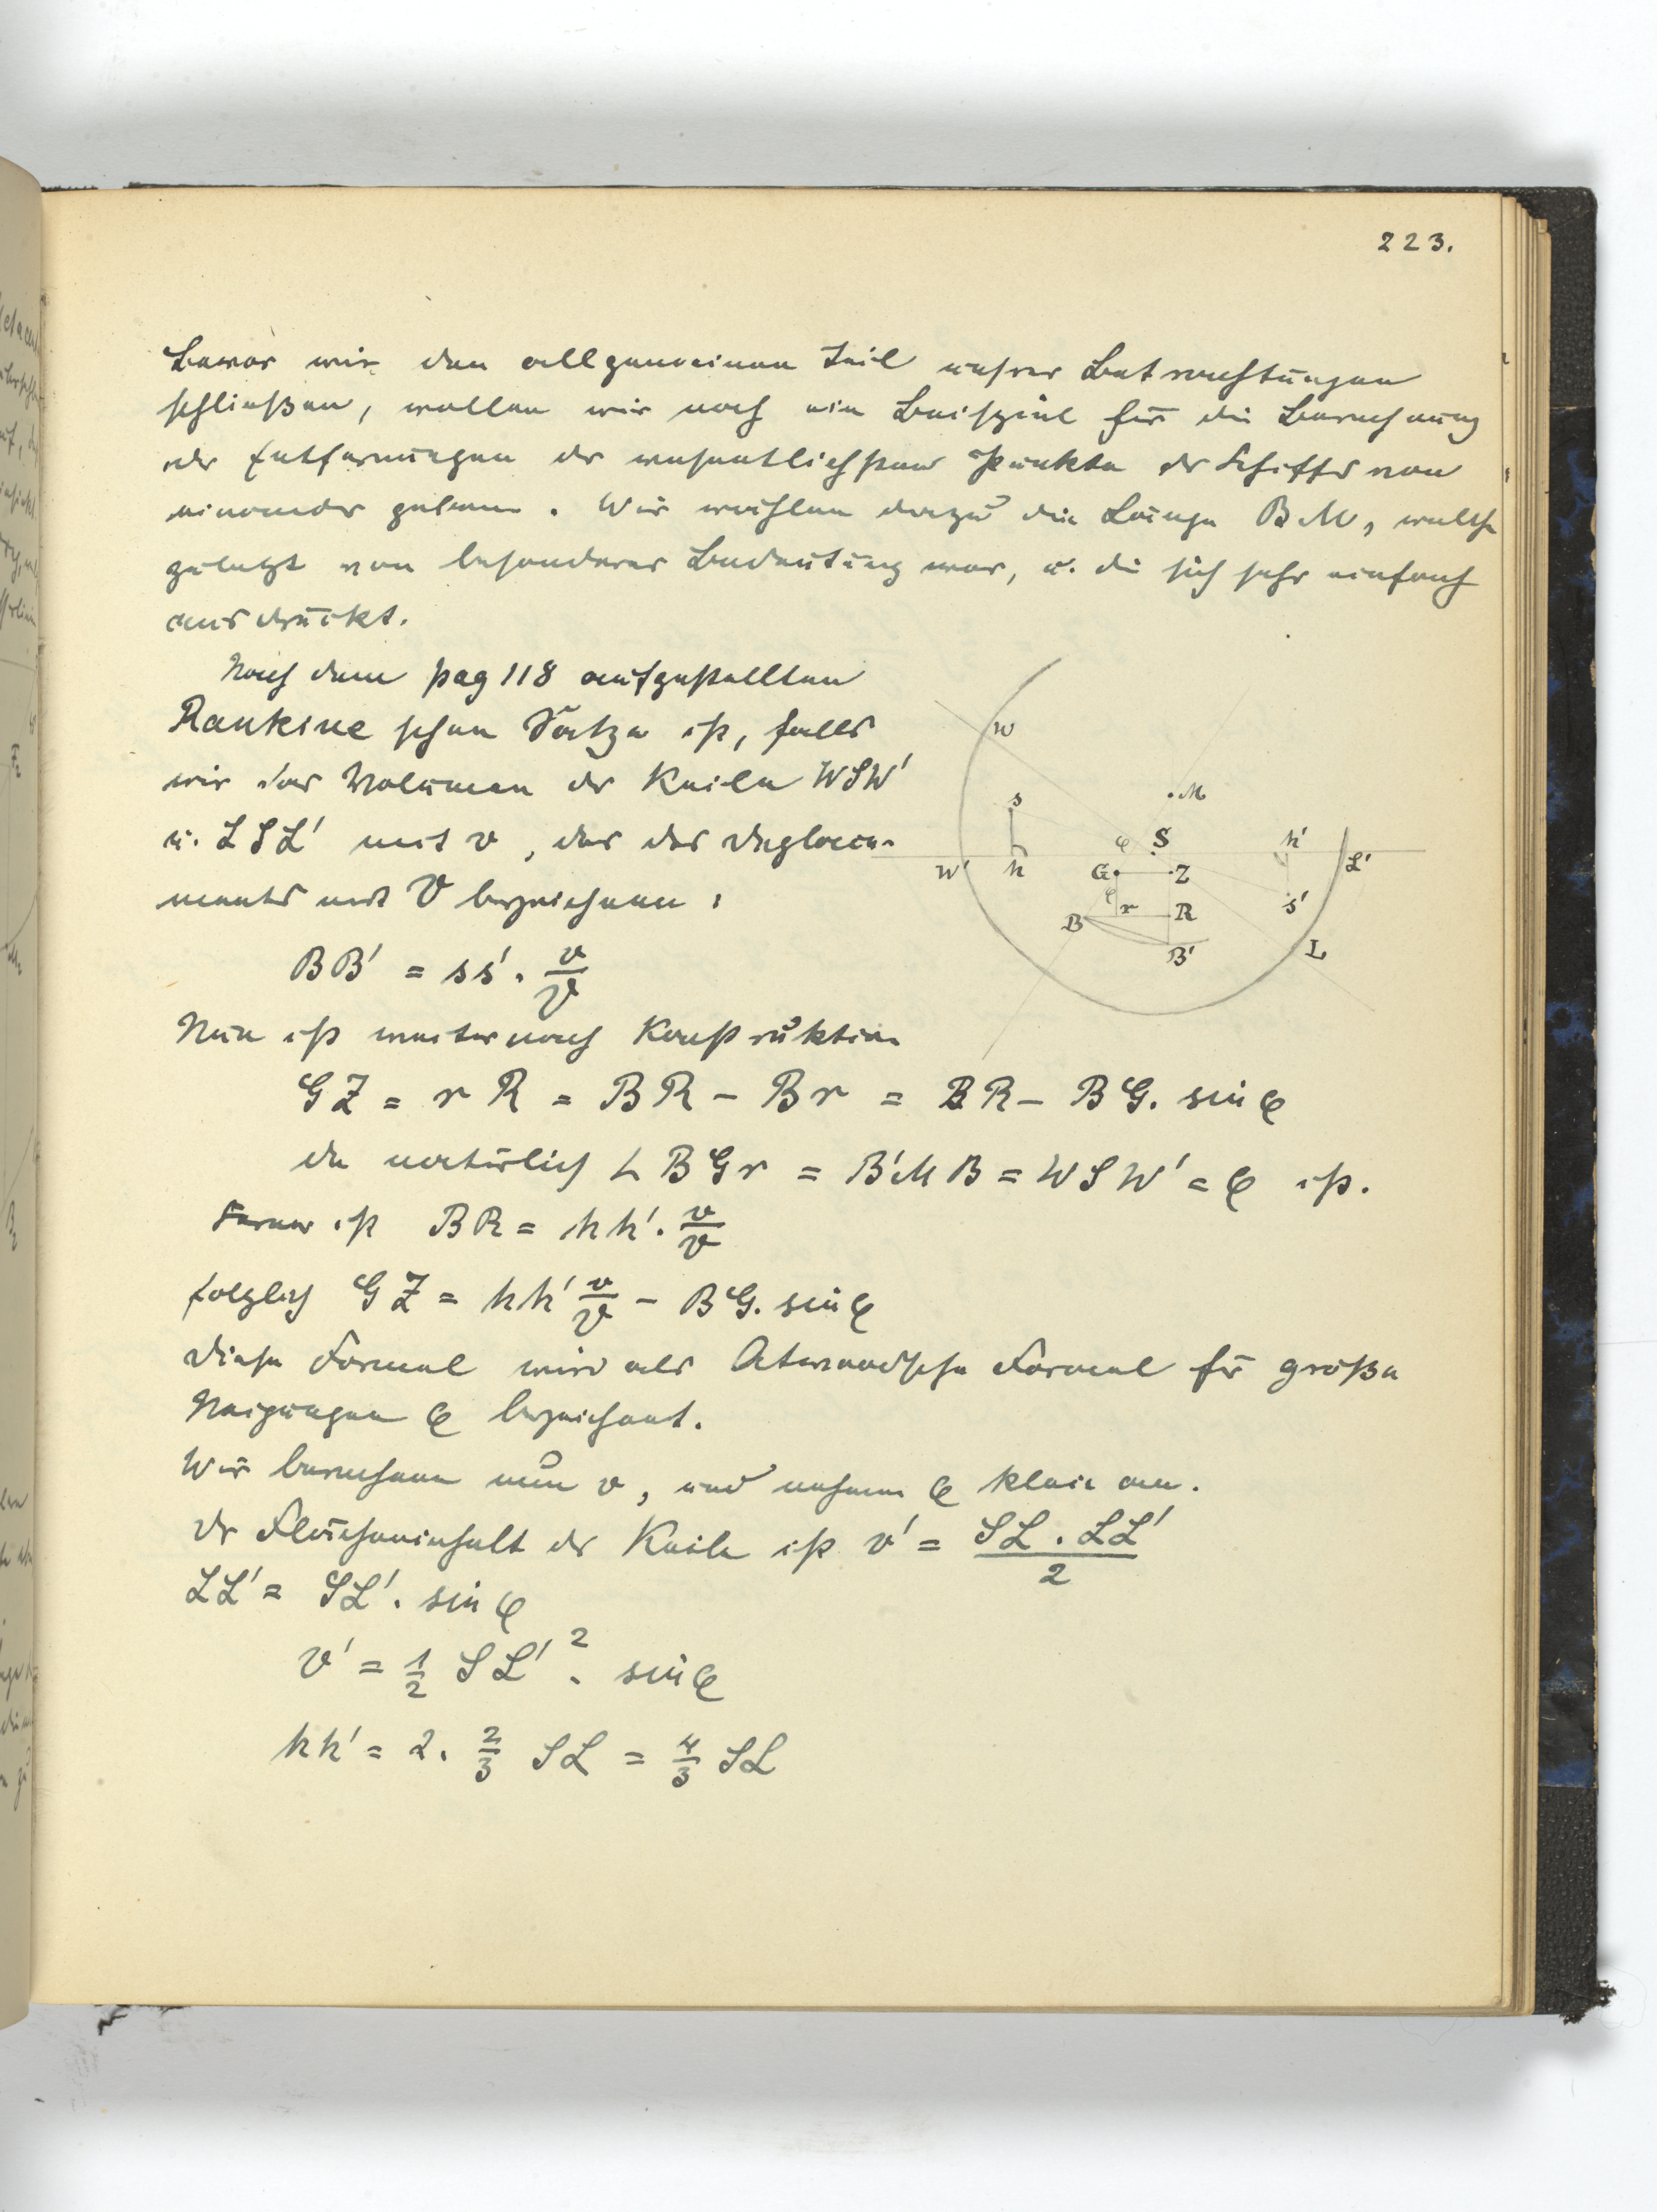 223.
Bevor wir den allgemeinen Teil unsrer Betrachtungen
schließen, wollen wir noch ein Beispiel für die Berechnung
der Entfernungen der wesentlichsten Punkte des Schiffes von
einander geben. Wir wählen dazu die Länge BM, welche
zuletzt von besonderer Bedeutung war, u. die sich sehr einfach
ausdrückt.
Nach dem pag 118 aufgestellten
Rankine schen Satze ist, falls
wir das Volumen der Keile WSW'
u. LSL' mit v, das des Deplace-
ments mit V bezeichnen:
BB' = ss' · v/V
Nun ist weiter nach Konstruktion
GZ = rR = BR – Br = BR – BG. sin φ
da natürlich ∠ BGr = B'MB = WSW' = φ ist.
Ferner ist BR = hh' · v/V
folglich GZ = hh' v/V – BG. sin φ
Diese Formel wird als Atwoodsche Formel für große
Neigungen φ bezeichnet.
Wir berechnen nun v, und nehmen φ klein an.
Der Flächeninhalt der Keile ist v' = SL . LL' / 2
LL' = SL' . sin φ
v' = 1/2 SL'² . sin φ
hh' = 2. 2/3 SL = 4/3 SL
W
M
s
φ
S
h'
W'
h
G
Z
L'
φ
r
R
s'
B
B'
L